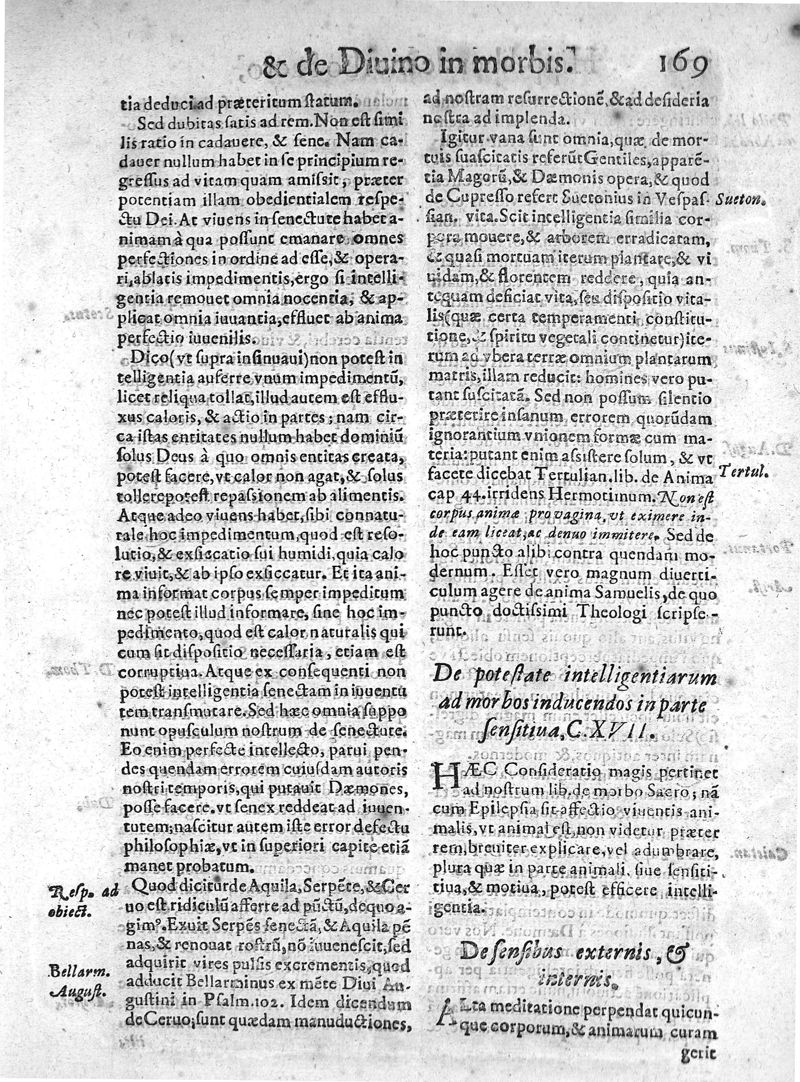 & de Diuino in morbis.
169
tia deduci ad præteritum statum.
Sed dubitas satis ad rem. Non est simi
lis ratio in cadauere, & sene. Nam ca-
dauer nullum habet in se principium re-
gressus ad vitam quam amissit, præter
potentiam illam obedientialem respe-
ctu Dei. At viuens in senectute habet a-
nimam à qua possunt emanare omnes
perfectiones in ordine ad esse, & opera-
ri, ablatis impedimentis, ergo si intelli-
gentia remouet omnia nocentia, & ap-
plicat omnia iuuantia, effluet ab anima
perfectio iuuenilis.
Dico (vt supra insinuaui) non potest in
telligentia auferre vnum impedimentũ,
licet reliqua tollat, illud autem est efflu-
xus caloris, & actio in partes; nam cir-
ca istas entitates nullum habet dominiũ
solus Deus à quo omnis entitas creata,
potest facere, vt calor non agat, & solus
tollere potest repassionem ab alimentis.
Atque adeo viuens habet, sibi connatu-
rale hoc impedimentum, quod est reso-
lutio, & exsiccatio sui humidi, quia calo
re viuit, & ab ipso exsiccatur. Et ita ani-
ma informat corpus semper impeditum
nec potest illud informare, sine hoc im-
pedimento, quod est calor naturalis qui
cum sit dispositio necessaria, etiam est
corruptiua. Atque ex consequenti non
potest intelligentia senectam in iuuentu
tem transmutare. Sed hæc omnia suppo
nunt opusculum nostrum de senectute.
Eo enim perfecte intellecto, parui pen-
des quendam errorem cuiusdam autoris
nostri temporis, qui putauit Dæmones,
posse facere, vt senex reddeat ad iuuen-
tutem; nascitur autem iste error defectu
philosophiæ, vt in superiori capite etiã
manet probatum.
Resp. ad
obiect.
Quod dicitur de Aquila, Serpẽte, & Cer
uo est ridiculũ afferre ad pũctũ, de quo a-
gim⁹. Exuit Serpẽs senectã, & Aquila pẽ
nas, & renouat rostrũ, nõ iuuenescit, sed
adquirit vires pulsis excrementis, quod
Bellarm.
August.
adducit Bellarminus ex mẽte Diui Au-
gustini in Psalm. 102. Idem dicendum
de Ceruo; sunt quædam manuductiones,
ad nostram resurrectionẽ, & ad desideria
nostra ad implenda.
Igitur vana sunt omnia, quæ de mor-
tuis suascitatis referũt Gentiles, apparẽ-
tia Magorũ, & Dæmonis opera, & quod
de Cupresso refert Suetonius in Vespas-
Sueton.
sian. vita. Scit intelligentia similia cor-
pora mouere, & arborem erradicatam,
& quasi mortuam iterum plantare, & vi
uidam, & florentem reddere, quia an-
tequam deficiat vita, seu dispositio vita-
lis (quæ certa temperamenti constitu-
tione, & spiritu vegetali continetur) ite-
rum ad vbera terræ omnium plantarum
matris, illam reducit: homines vero pu-
tant suscitatã. Sed non possum silentio
præterire insanum errorem quorũdam
ignorantium vnionem formæ cum ma-
teria: putant enim assistere solum, & vt
facete dicebat Tertulian. lib. de Anima
Tertul.
cap 44. irridens Hermotimum. Non est
corpus animæ pro vagina, vt eximere in-
de eam liceat, ac denuo immitere. Sed de
hoc puncto alibi contra quendam mo-
dernum. Esset vero magnum diuerti-
culum agere de anima Samuelis, de quo
puncto doctissimi Theologi scripse-
runt.
De potestate intelligentiarum
ad morbos inducendos in parte
sensitiua, C. XVII.
HÆC Consideratio magis pertinet
ad nostrum lib. de morbo Sacro; nã
cum Epilepsia sit affectio viuentis ani-
malis, vt animal est, non videtur præter
rem, breuiter explicare, vel adumbrare,
plura quæ in parte animali, siue sensiti-
tiua, & motiua, potest efficere intelli-
gentia.
De sensibus externis, &
internis.
Alta meditatione perpendat quicun-
que corporum, & animarum curam
gerit